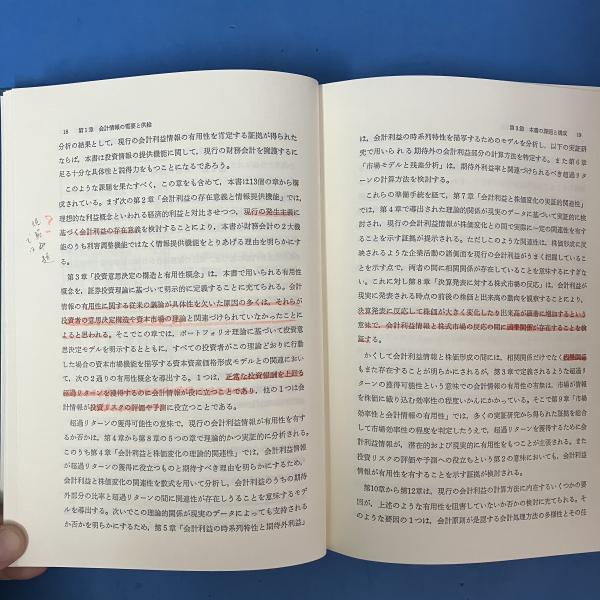 18　第1章　会計情報の需要と供給
分析の結果として，現行の会計利益情報の有用性を肯定する証拠が得られた
ならば，本書は投資情報の提供機能に関して，現行の財務会計を擁護するに
足る十分な具体性と説得力をもつことになるであろう。
このような課題を果たすべく，この章をも含めて，本書は13個の章から構
成されている。まず次の第2章「会計利益の存在意義と情報提供機能」では，
理想的な利益概念といわれる経済的利益と対比させつつ，現行の発生主義に
基づく会計利益の存在意義を検討するとともに，本書が財務会計の2大機
能のうち利害調整機能ではなく情報提供機能をとりあげる理由を明らかにす
る。
第3章「投資意思決定の構造と有用性概念」は，本書で用いられる有用性
概念を，証券投資理論に基づいて明示的に定義することに充てられる。会計
情報の有用性に関する従来の議論が具体性を欠いた原因の多くは，それらが
投資者の意思決定構造や資本市場の理論と関連づけられていなかったことに
よると思われる。そこでこの章では，ポートフォリオ理論に基づいて投資意
思決定モデルを明示するとともに，すべての投資者がこの理論どおりに行動
した場合の資本市場機能を描写する資本資産価格形成モデルとの関連におい
て，次の2通りの有用性概念を導出する。1つは，正常な投資報酬を上回る
超過リターンを獲得するのに会計情報が役に立つことであり，他の1つは会
計情報が投資リスクの評価や予測に役立つことである。
超過リターンの獲得可能性の意味で，現行の会計利益情報が有用性を有す
るか否かは，第4章から第8章の5つの章で理論的かつ実証的に分析される。
このうち第4章「会計利益と株価変化の理論的関連性」では，会計利益情報
が超過リターンの獲得に役立つものと期待すべき理由を明らかにするため，
会計利益と株価変化の関連性を数式を用いて分析し，会計利益のうちの期待
外部分の比率と超過リターンの間に関連性が存在しうることを意味するモデ
ルを導出する。次いでこの理論的関係が現実のデータによっても支持される
か否かを明らかにするため，第5章「会計利益の時系列特性と期待外利益」
第3節　本書の課題と構成　19
は，会計利益の時系列特性を描写するためのモデルを分析し，以下の実証研
究で用いられる期待外の会計利益部分の計算方法を特定する。また第6章
「市場モデルと残差分析」は，期待外利益率と関連づけられるべき超過リタ
ーンの計算方法を検討する。
これらの準備手続を経て，第7章「会計利益と株価変化の実証的関連性」
では，第4章で導出された理論的関係が現実のデータに基づいて実証的に検
討され，現行の会計利益と株価変化との間で実際に一定の関連性を有す
ることを示す証拠が提示される。ただしこのような関連性は，株価形成に反
映されるような企業活動の諸側面を現行の会計利益がうまく把握しているこ
とを示す点で，両者の間に相関関係が存在していることを意味するにすぎな
い。これに対し第8章「決算発表に対する株式市場の反応」は，会計利益が
現実に発表される時点の前後の株価と出来高の動向を観察することにより，
決算発表に反応して株価が大きく変化したり出来高が顕著に増加するという
意味で，会計利益情報と株式市場の反応の間に因果関係が存在することを検
証する。
かくして会計利益情報と株価形成の間には，相関関係だけでなく因果関係
もまた存在することが明らかにされるが，第3章で定義されるような超過リ
ターンの獲得可能性という意味での会計情報の有用性の有無は，市場が情報
を株価に織り込む効率性の程度いかんにかかっている。そこで第9章「市場
効率性と会計情報の有用性」では，多くの実証研究から得られた証拠を総合
して市場効率性の程度を判定したうえで，超過リターンを獲得するために会
計利益情報が，潜在的および現実的に有用性をもつことが主張される。また
投資リスクの評価や予測への役立ちという第2の意味においても，会計利益
情報が有用性を有することを示す証拠が検討される。
第10章から第12章は，現行の会計利益の計算方法に内在するいくつかの要
因が，上述のような有用性を阻害していないか否かの検討に充てられる。そ
のような要因の1つは，会計原則が是認する会計処理方法の多様性とその任